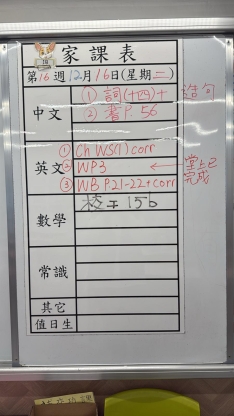 家課表
第16週12月16日(星期二)
中文
① 詞(十四)+造句
② 書P.56
英文
① Ch WS(1) corr
② WP3 ← 堂上已完成
③ WB P21-22+corr
數學
常識
其它
值日生